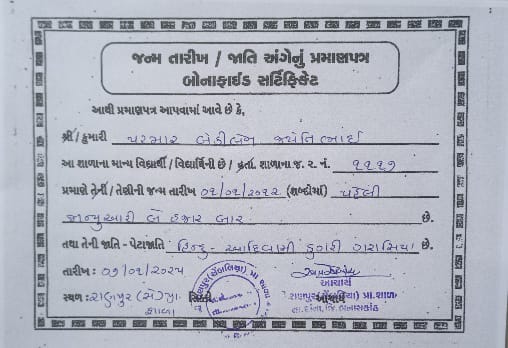 જન્મ તારીખ / જાતિ અંગેનું પ્રમાણપત્ર
બોનાફાઈડ સર્ટિફિકેટ
આથી પ્રમાણપત્ર આપવામાં આવે છે કે,
શ્રી / કુમારી પરમાર
આ શાળાના માન્ય વિદ્યાર્થી / વિદ્યાર્થિની છે / હતા. શાળાના જ. ર. નં. ૧૧૧૭
પ્રમાણે તેની / તેણીની જન્મ તારીખ ૦૧/૦૧/૨૦૧૨ (શબ્દોમાં) પહેલી
જાન્યુઆરી બે હજાર બાર છે.
તથા તેની જાતિ - પેટાજાતિ હિન્દુ - આદિવાસી ડુંગરી ગરાસિયા છે.
તારીખ :
આચાર્ય
સ્થળ : રાણપુર
રાણપુર પ્રા. શાળા